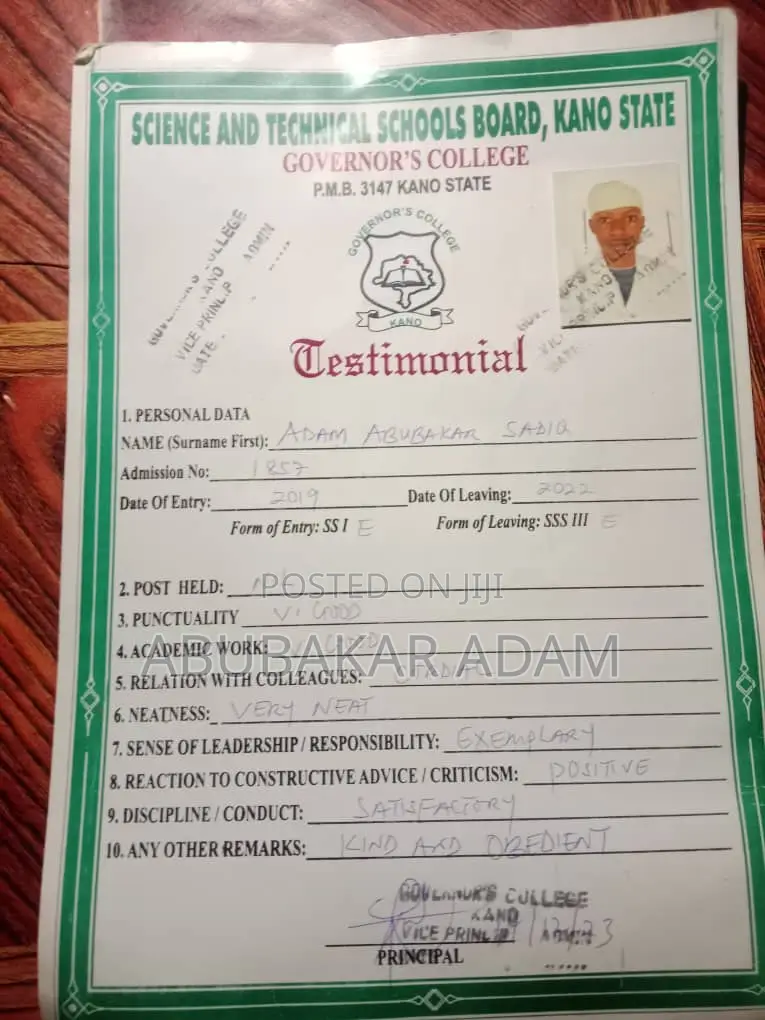 SCIENCE AND TECHNICAL SCHOOLS BOARD, KANO STATE
GOVERNOR'S COLLEGE
P.M.B. 3147 KANO STATE
GOVERNOR'S COLLEGE
KANO
COLLEGE
KANO
VICE PRINCIP ADMIN
DATE
Testimonial
1. PERSONAL DATA
NAME (Surname First): ADAM ABUBAKAR SADIQ
Admission No: 1857
Date Of Entry: 2019 Date Of Leaving: 2022
Form of Entry: SS I E Form of Leaving: SSS III E
2. POST HELD:
POSTED ON JIJI
3. PUNCTUALITY V. GOOD
4. ACADEMIC WORK: V. GOOD
ABUBAKAR ADAM
5. RELATION WITH COLLEAGUES: CORDIAL
6. NEATNESS: VERY NEAT
7. SENSE OF LEADERSHIP / RESPONSIBILITY: EXEMPLARY
8. REACTION TO CONSTRUCTIVE ADVICE / CRITICISM: POSITIVE
9. DISCIPLINE / CONDUCT: SATISFACTORY
10. ANY OTHER REMARKS: KIND AND OBEDIENT
GOVERNOR'S COLLEGE
KANO
VICE PRINCIP ADMIN
PRINCIPAL